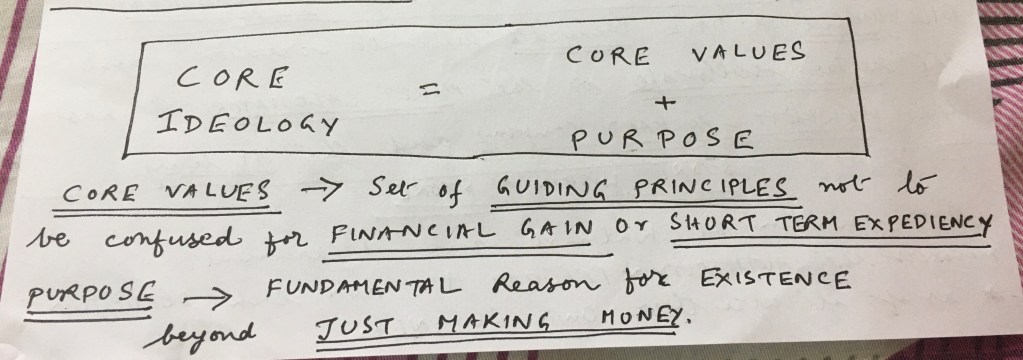 CORE IDEOLOGY = CORE VALUES + PURPOSE
CORE VALUES → Set of GUIDING PRINCIPLES not to
be confused for FINANCIAL GAIN or SHORT TERM EXPEDIENCY
PURPOSE → FUNDAMENTAL Reason for EXISTENCE
beyond JUST MAKING MONEY.